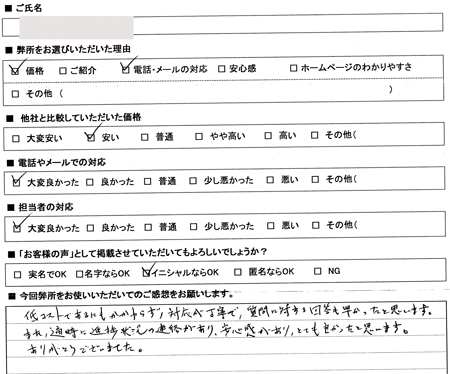 ■ ご氏名
■ 弊所をお選びいただいた理由
☑ 価格 □ ご紹介 ☑ 電話・メールの対応 □ 安心感 □ ホームページのわかりやすさ
□ その他 ( )
■ 他社と比較していただいた価格
□ 大変安い ☑ 安い □ 普通 □ やや高い □ 高い □ その他(
■ 電話やメールでの対応
☑ 大変良かった □ 良かった □ 普通 □ 少し悪かった □ 悪い □ その他(
■ 担当者の対応
☑ 大変良かった □ 良かった □ 普通 □ 少し悪かった □ 悪い □ その他(
■ 「お客様の声」として掲載させていただいてもよろしいでしょうか?
□ 実名でOK □ 名字ならOK ☑ イニシャルならOK □ 匿名ならOK □ NG
■ 今回弊所をお使いいただいてのご感想をお願いします。
低コストであるにもかかわらず、対応が丁寧で、質問に対する回答も早かったと思います。
また、適時に進捗状況の連絡があり、安心感があり、とても良かったと思います。
ありがとうございました。